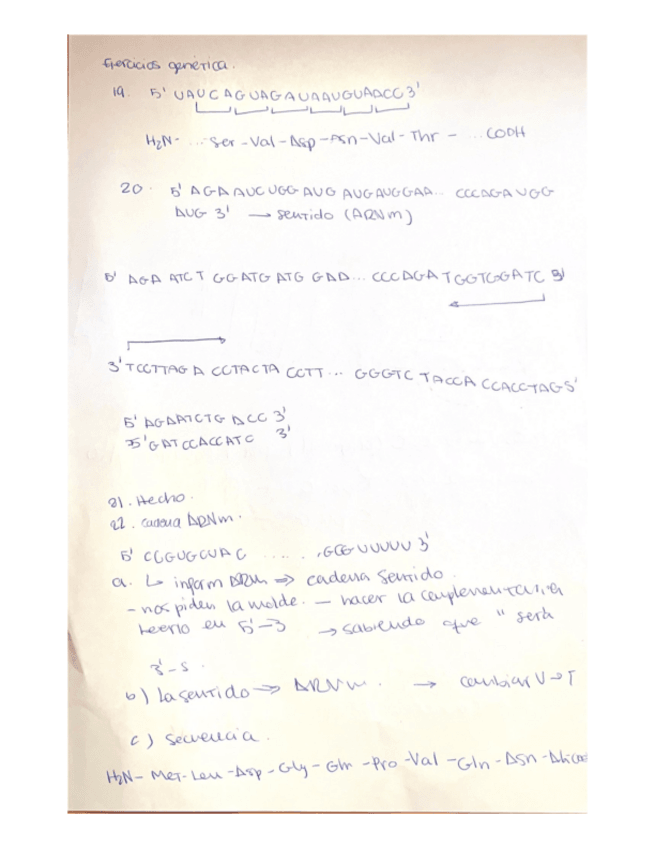 Ejercicios genética.
19. 5' UAUCAGUAGAUAAUGUAACC 3'
H2N- ... Ser-Val-Asp-Asn-Val-Thr- ... COOH
20. 5' AGA AUC UGG AUG AUGAUGGAA... CCCAGA UGG
AUG 3' → sentido (ARNm)
5' AGA ATCT GGATG ATG GAA... CCCAGA TGGTGGATC 3'
3' TCCTTAGA CCTACTA CCTT... GGGTC TACCA CCACCTAG5'
5' AGAATCTG ACC 3'
5' GATCCACCATC 3'
21. Hecho.
22. cadena ARNm.
5' CCGUGCUAC ......,GCGUUUUU 3'
a. ↳ inform ARN ⇒ cadena sentido.
- nos piden la molde. — hacer la complementaria,
leerlo en 5'-3 → sabiendo que " será
3'-5.
b) La sentido ⇒ ARNm. → cambiar U→T
c) secuencia.
H2N- Met-Leu-Asp-Gly-Gln-Pro-Val-Gln-Asn-